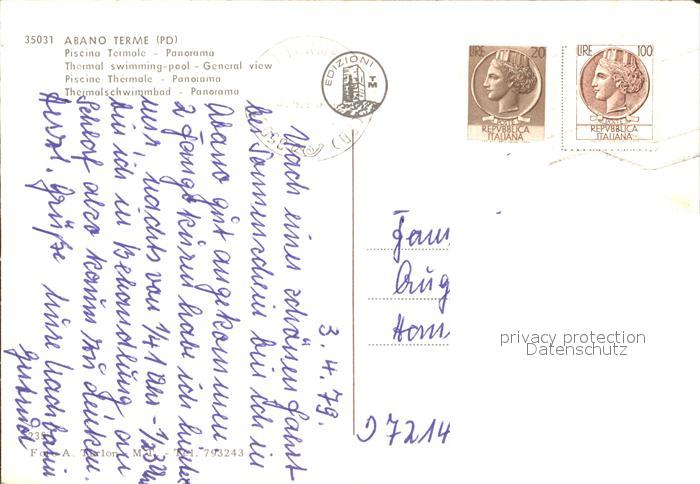 35031 ABANO TERME (PD)
Piscina Termale - Panorama
Thermal swimming-pool - General view
Piscine Thérmale - Panorama
Thermalschwimmbad - Panorama
EDIZIONI
TM
LIRE 20
POSTE
REPVBBLICA
ITALIANA
LIRE 100
POSTE
REPVBBLICA
ITALIANA
3.4.79.
Nach einer schönen Fahrt
bei Sonnenschein bin ich in
Abano gut angekommen
2 Fango kuren habe ich hinter
mir, nachts von 1/4 1 Uhr - 1/2 3 Uhr
bin ich in Behandlung an
Schlaf also kaum zu denken.
Herzl. Grüße Eure Nachbarin
Gertrud
Fam.
Aug
Hom
D 7214
privacy protection
Datenschutz
Tel. 793243